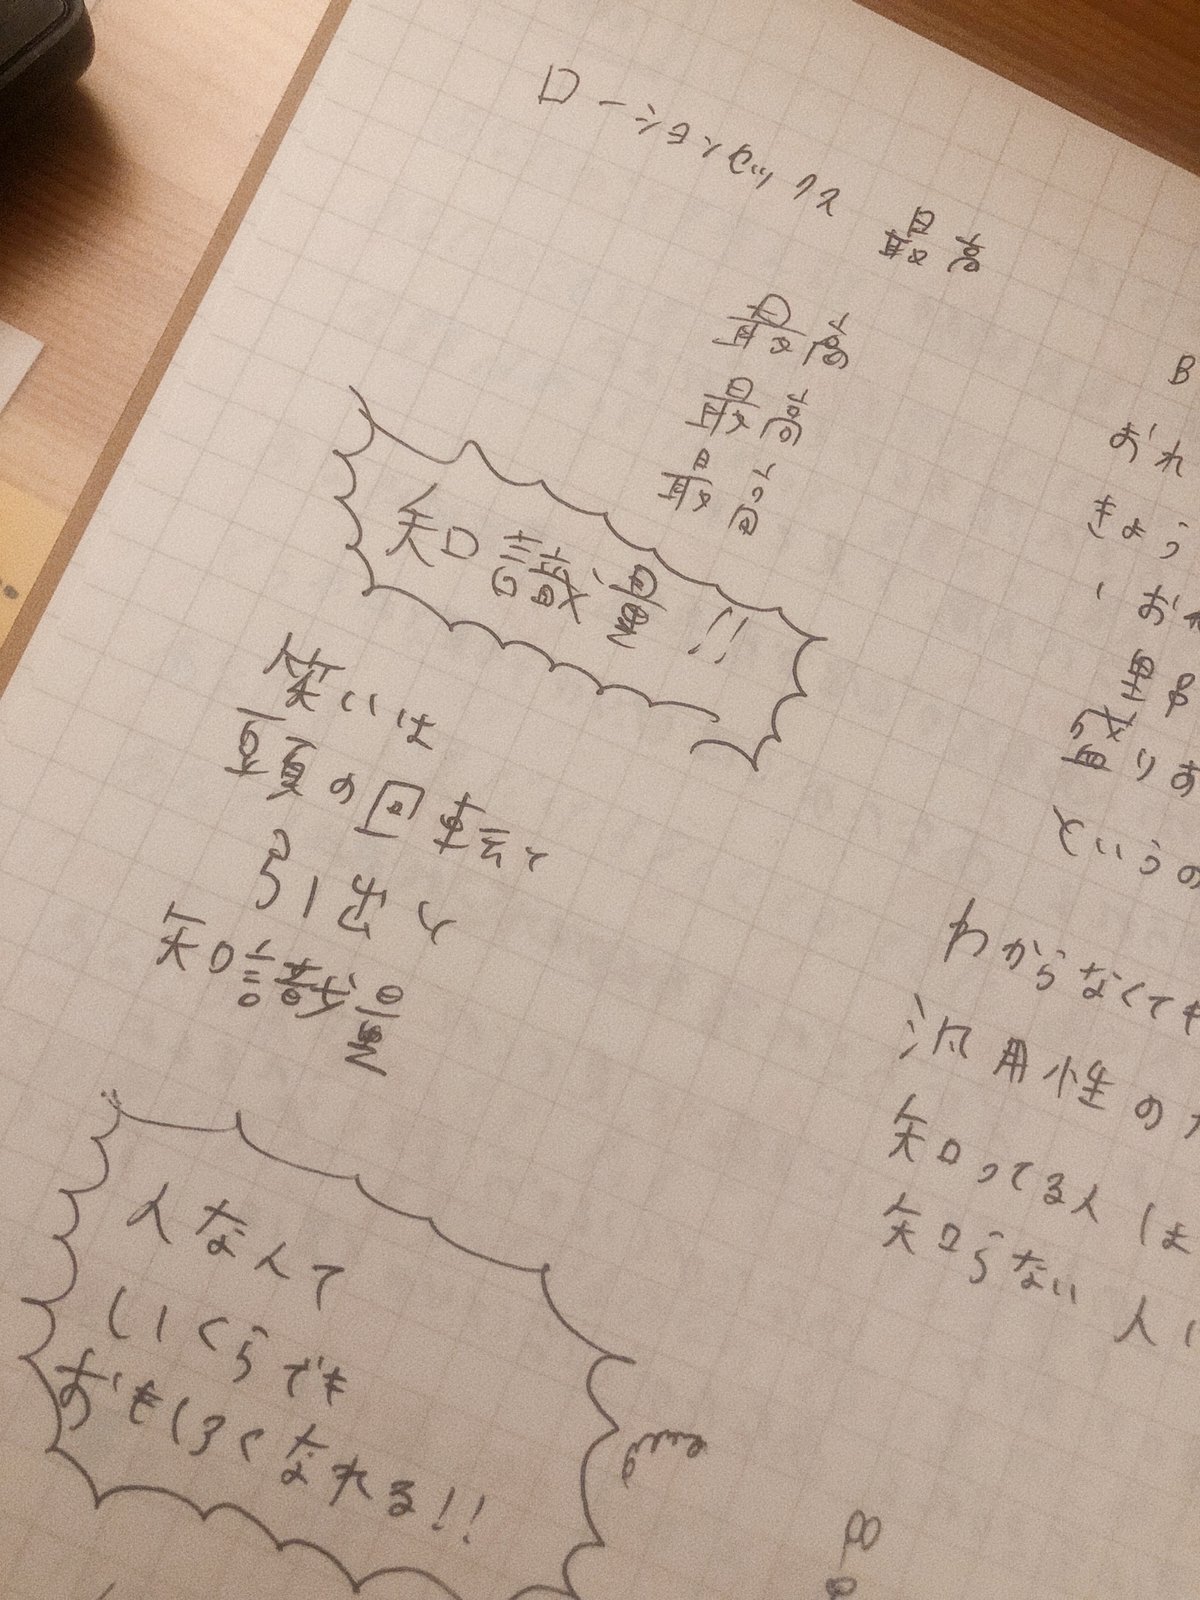 ローションセックス 最高
最高
最高
最高
知識量!!
笑いは
頭の回転と
引出しと
知識量
人なんて
いくらでも
おもしろくなれる!!
B
おれ
きょう
、おれ
盛りあ
というの
わからなくても
汎用性の
知ってる人は
知らない人